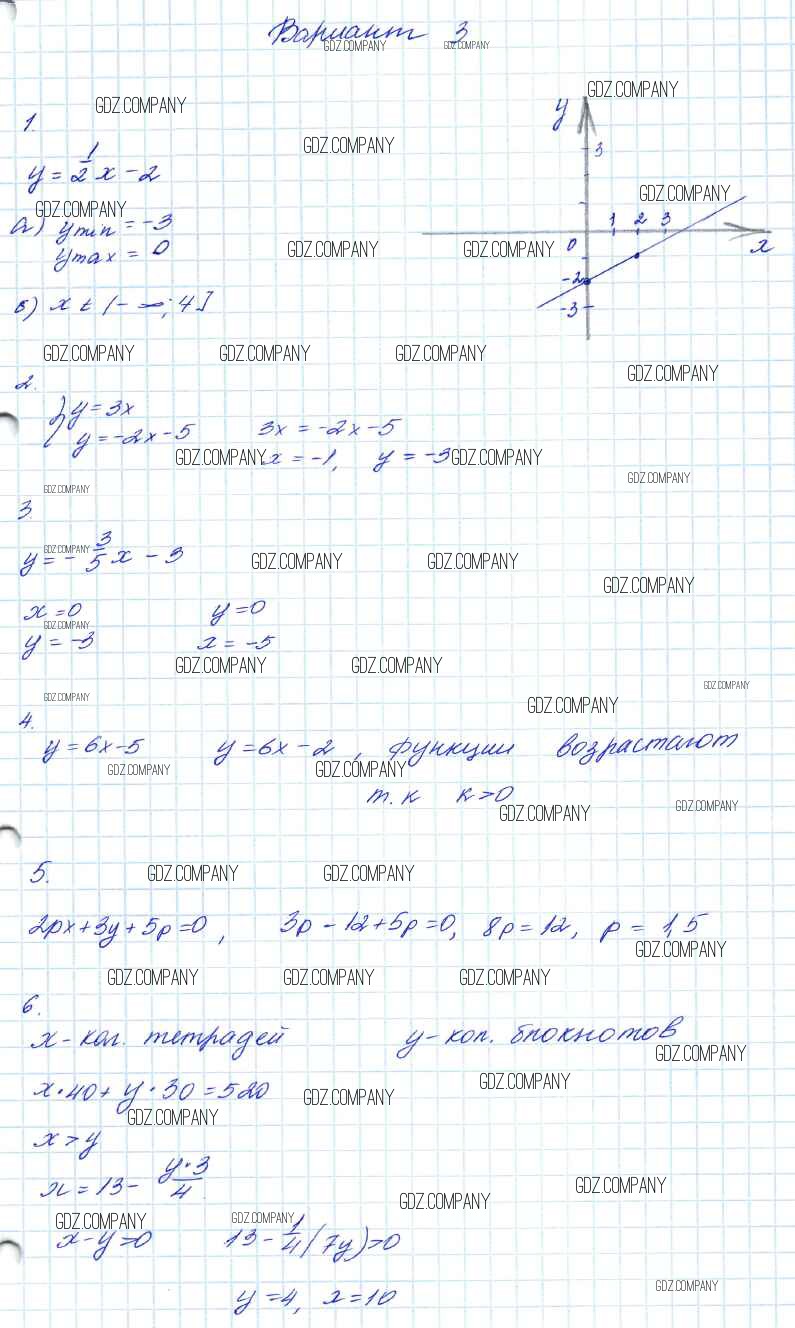 Вариант 3
1.
y = 1/2 x - 2
а) ymin = -3
ymax = 0
б) x ∈ (-∞; 4]
y
3
1 2 3
0
x
-2
-3
2.
{ y = 3x
y = -2x - 5 3x = -2x - 5
x = -1, y = -3
3.
y = - 3/5 x - 3
x = 0 y = 0
y = -3 x = -5
4.
y = 6x - 5 y = 6x - 2, функции возрастают
т.к k > 0
5.
2px + 3y + 5p = 0, 3p - 12 + 5p = 0, 8p = 12, p = 1,5
6.
x - кол. тетрадей y - кол. блокнотов
x · 40 + y · 30 = 520
x > y
x = 13 - y·3/4
x - y > 0 13 - 1/4 (7y) > 0
y = 4, x = 10
GDZ.COMPANY